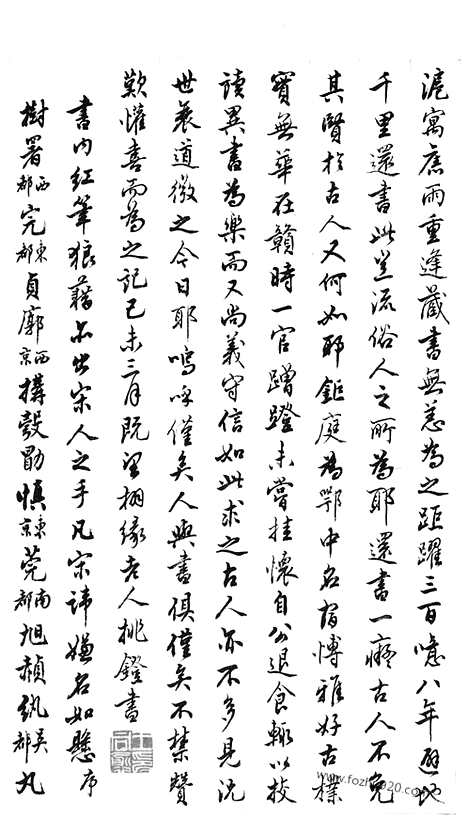 滬寓舊雨重逢藏書無恙為之距躍三百噫八年避地
千里還書此豈流俗人之所為耶還書一癡古人不免
其賢於古人又何如耶鉅庭為鄂中名宿博雅好古樸
實無華在贛時一官蹭蹬未嘗挂懷自公退食輒以挍
讀異書為樂而又尚義守信如此求之古人亦不多見況
世衰道微之今日耶嗚呼僅矣人與書俱僅矣不禁贊
歎懽喜而為之記己未三月既望栩緣老人挑鐙書
書內紅筆狼藉亦出宋人之手凡宋諱嫌名如懸序
樹署西都完東都貞廓西京搆彀勖慎東京莞南都旭赬紈吳都丸
www.fozhu920.com